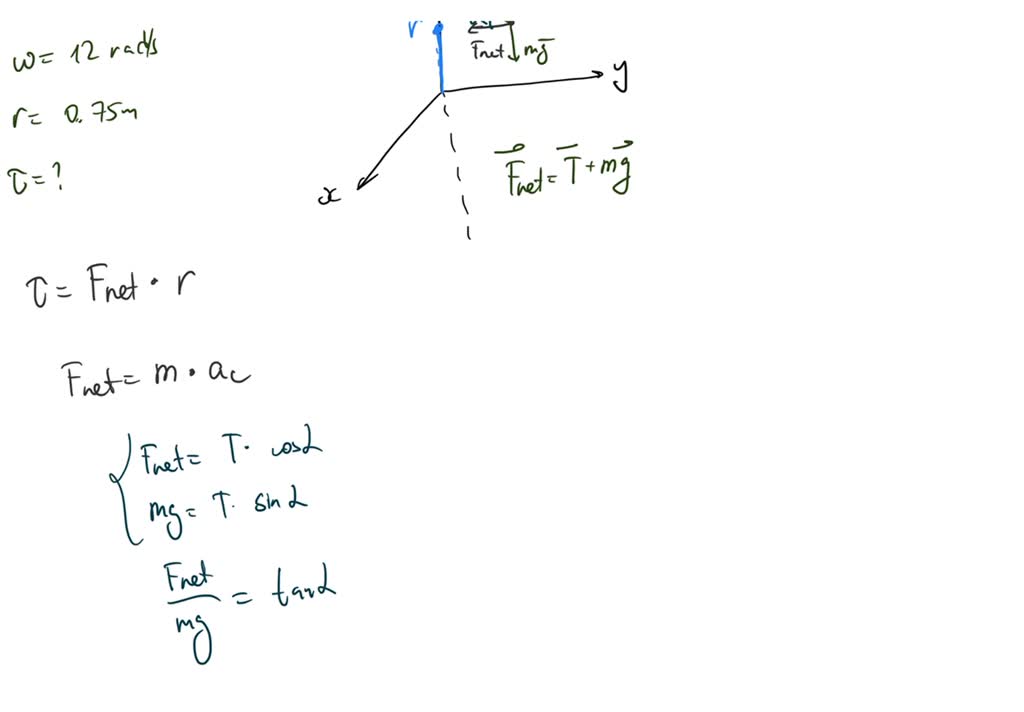 ω = 12 rad/s
r = 0.75m
τ = ?
r
Fnet
mg⃗
y
x
F⃗net = T⃗ + mg⃗
τ = Fnet · r
Fnet = m · ac
Fnet = T · cosα
mg = T · sinα
Fnet/mg = tanα